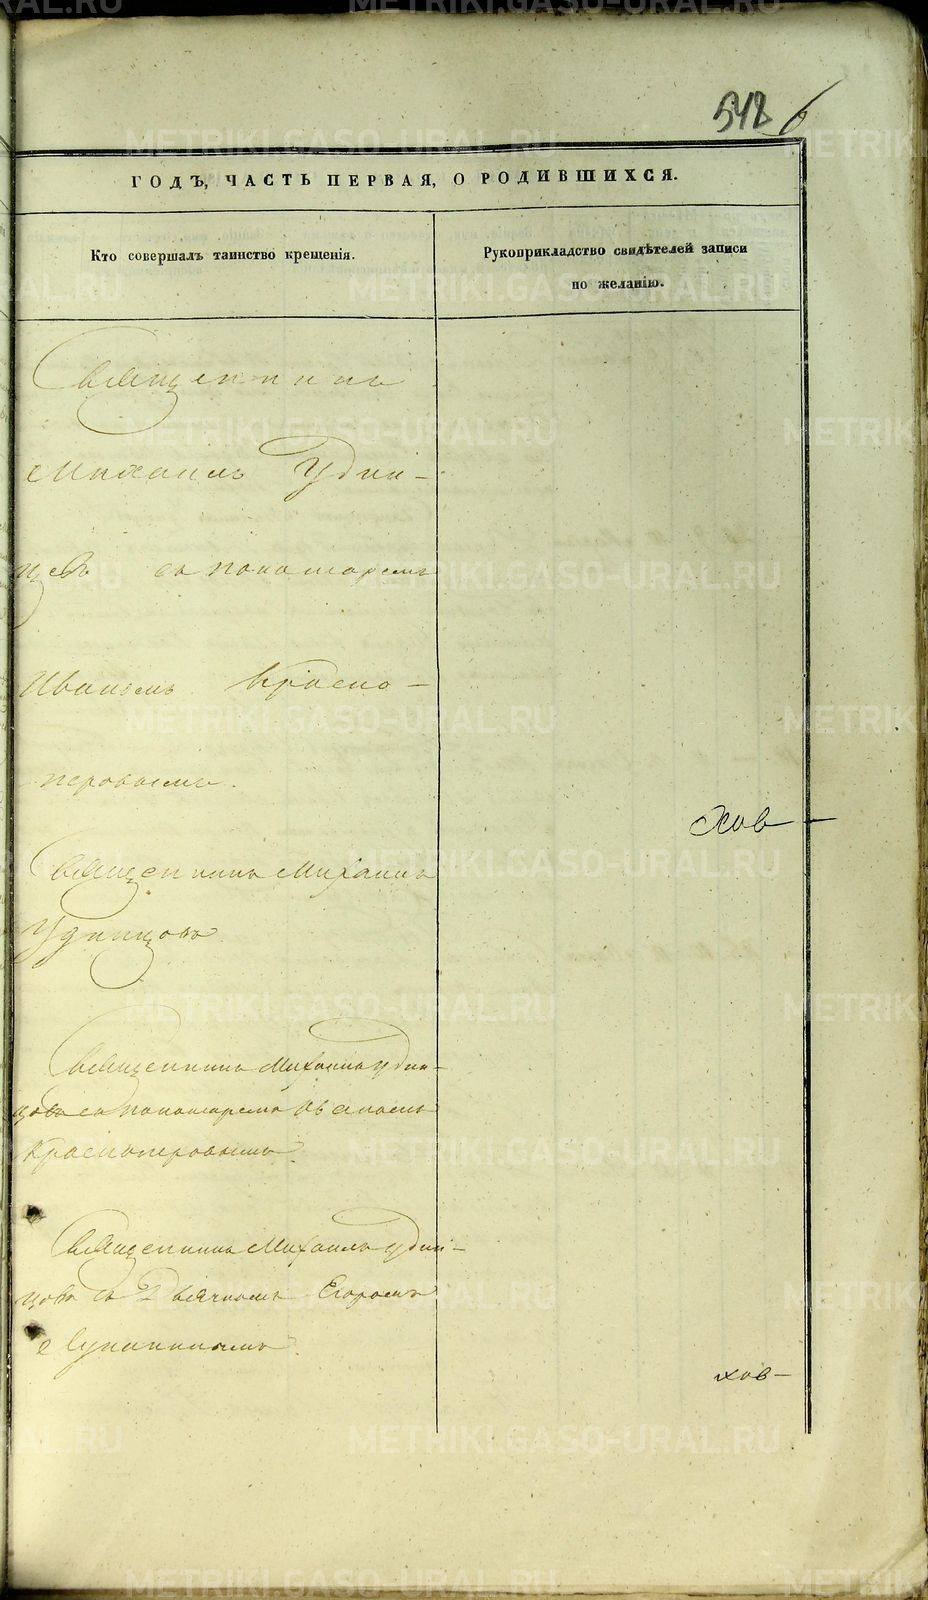 548 6
ГОДЪ, ЧАСТЬ ПЕРВАЯ, О РОДИВШИХСЯ.
Кто совершалъ таинство крещенія.
Рукоприкладство свидѣтелей записи
по желанію.
Священникъ
Михаилъ Удин-
цевъ съ пономаремъ
Иваномъ Красно-
перовымъ.
Священникъ Михаилъ
Удинцовъ
Священникъ Михаилъ Удин-
цовъ съ пономаремъ Иваномъ
Красноперовымъ.
Священникъ Михаилъ Удин-
цовъ съ Дьячкомъ Егоромъ
хов-
хов-
METRIKI.GASO-URAL.RU